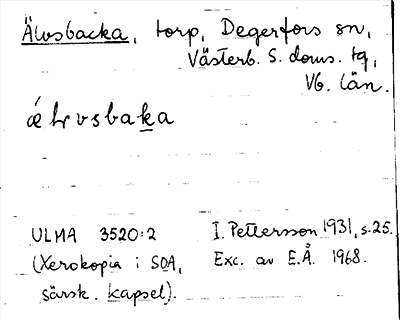 Älvsbacka, torp, Degerfors sn,
Västerb. S. doms. tg,
Vb. län.
ǽƚvsbaka
ULMA 3520:2
(Xerokopia i SOA,
särsk. kapsel).
I. Pettersson 1931, s. 25.
Exc. av E.Å. 1968.